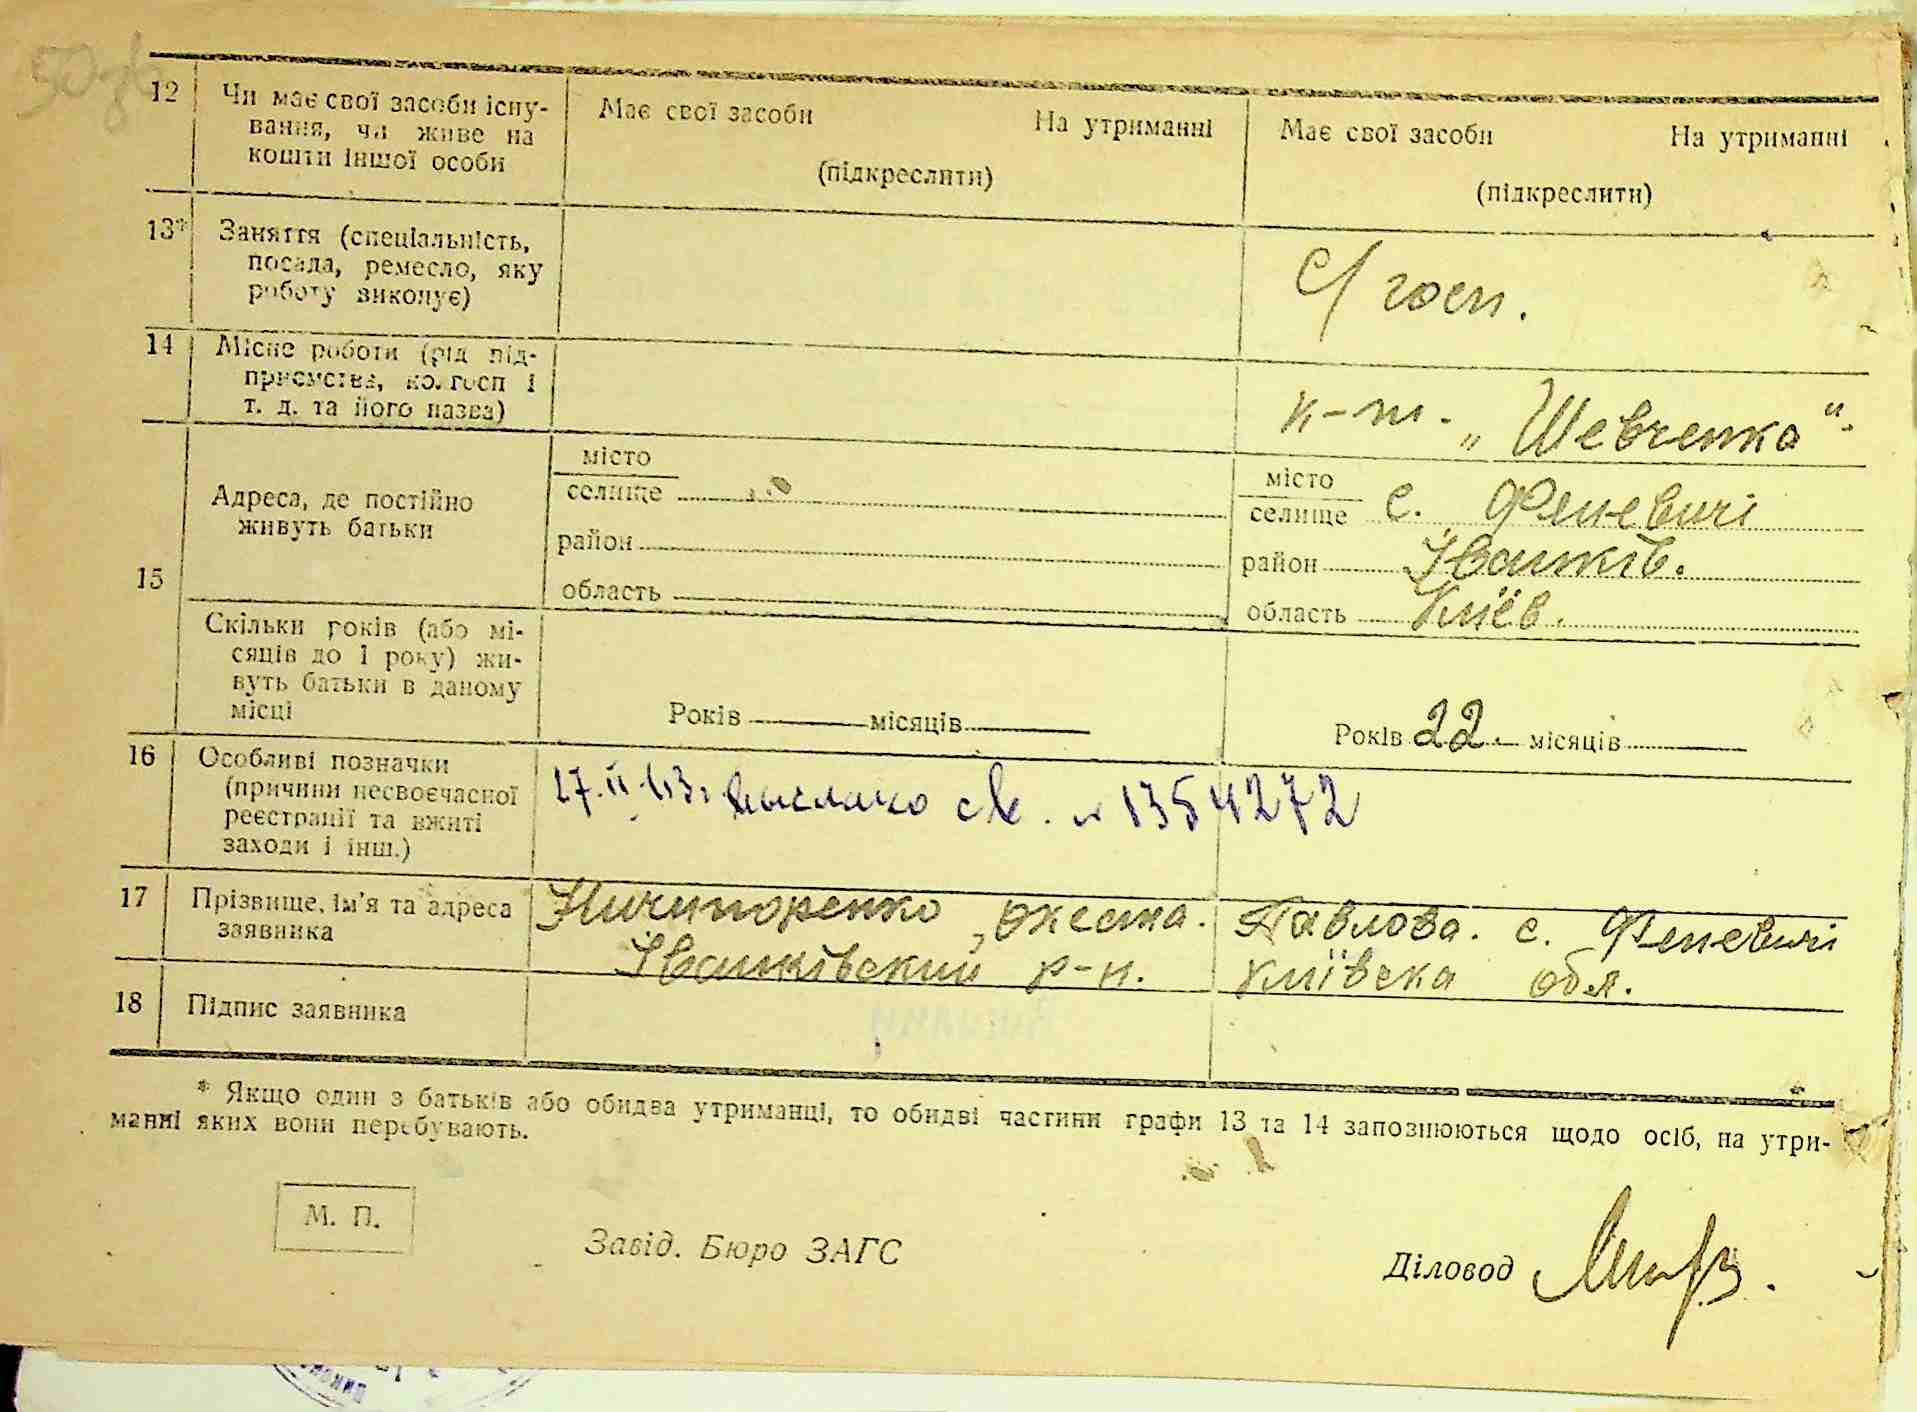 50 зв
12 Чи має свої засоби існу- Має свої засоби На утриманні Має свої засоби На утриманні
вання, чи живе на
кошти іншої особи (підкреслити) (підкреслити)
13* Заняття (спеціальність,
посада, ремесло, яку С/госп.
роботу виконує)
14 Місце роботи (рід під-
приємства, колгосп і к-т. „Шевченка".
т. д. та його назва)
15 Адреса, де постійно
живуть батьки
місто місто
селище селище с. Феневичі
район район Іванків.
область область Київ.
Скільки років (або мі-
сяців до 1 року) жи-
вуть батьки в даному
місці Років місяців Років 22. місяців
16 Особливі позначки
(причини несвоєчасної 17. II 63 г выслано св. № 1354272
реєстрації та вжиті
заходи і інш.)
17 Прізвище, ім'я та адреса Ничипоренко, Павлова. с. Феневичі
заявника Іванківский р-н. Київска обл.
18 Підпис заявника
* Якщо один з батьків або обидва утриманці, то обидві частини графи 13 та 14 запознюються щодо осіб, на утри-
манні яких вони перебувають.
М. П.
Завід. Бюро ЗАГС
Діловод